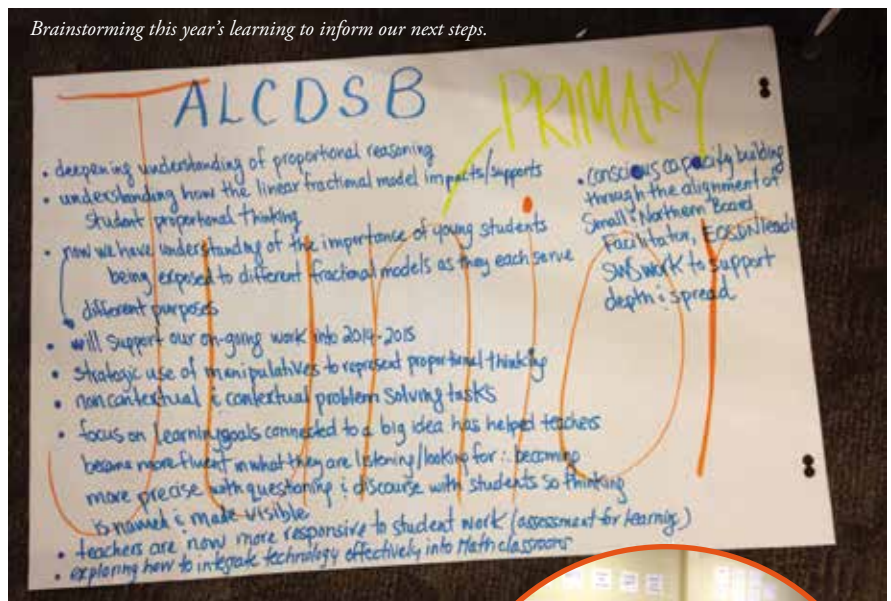 Brainstorming this year's learning to inform our next steps.
ALCDSB
PRIMARY
Junior
• deepening understanding of proportional reasoning
• understanding how the linear fractional model impacts/supports
student proportional thinking
• now we have understanding of the importance of young students
being exposed to different fractional models as they each serve
different purposes
• will support our on-going work into 2014-2015
• strategic use of manipulatives to represent proportional thinking
• noncontextual & contextual problem solving tasks
• focus on learning goals connected to a big idea has helped teachers
become more fluent in what they are listening/looking for ∴ becoming
more precise with questioning & discourse with students so thinking
is named & made visible
• teachers are now more responsive to student work (assessment for learning)
• exploring how to integrate technology effectively into Math classrooms
• conscious capacity building
through the alignment of
Small & Northern Board
Facilitator, EOSDN lead
SWS work to support
depth & spread